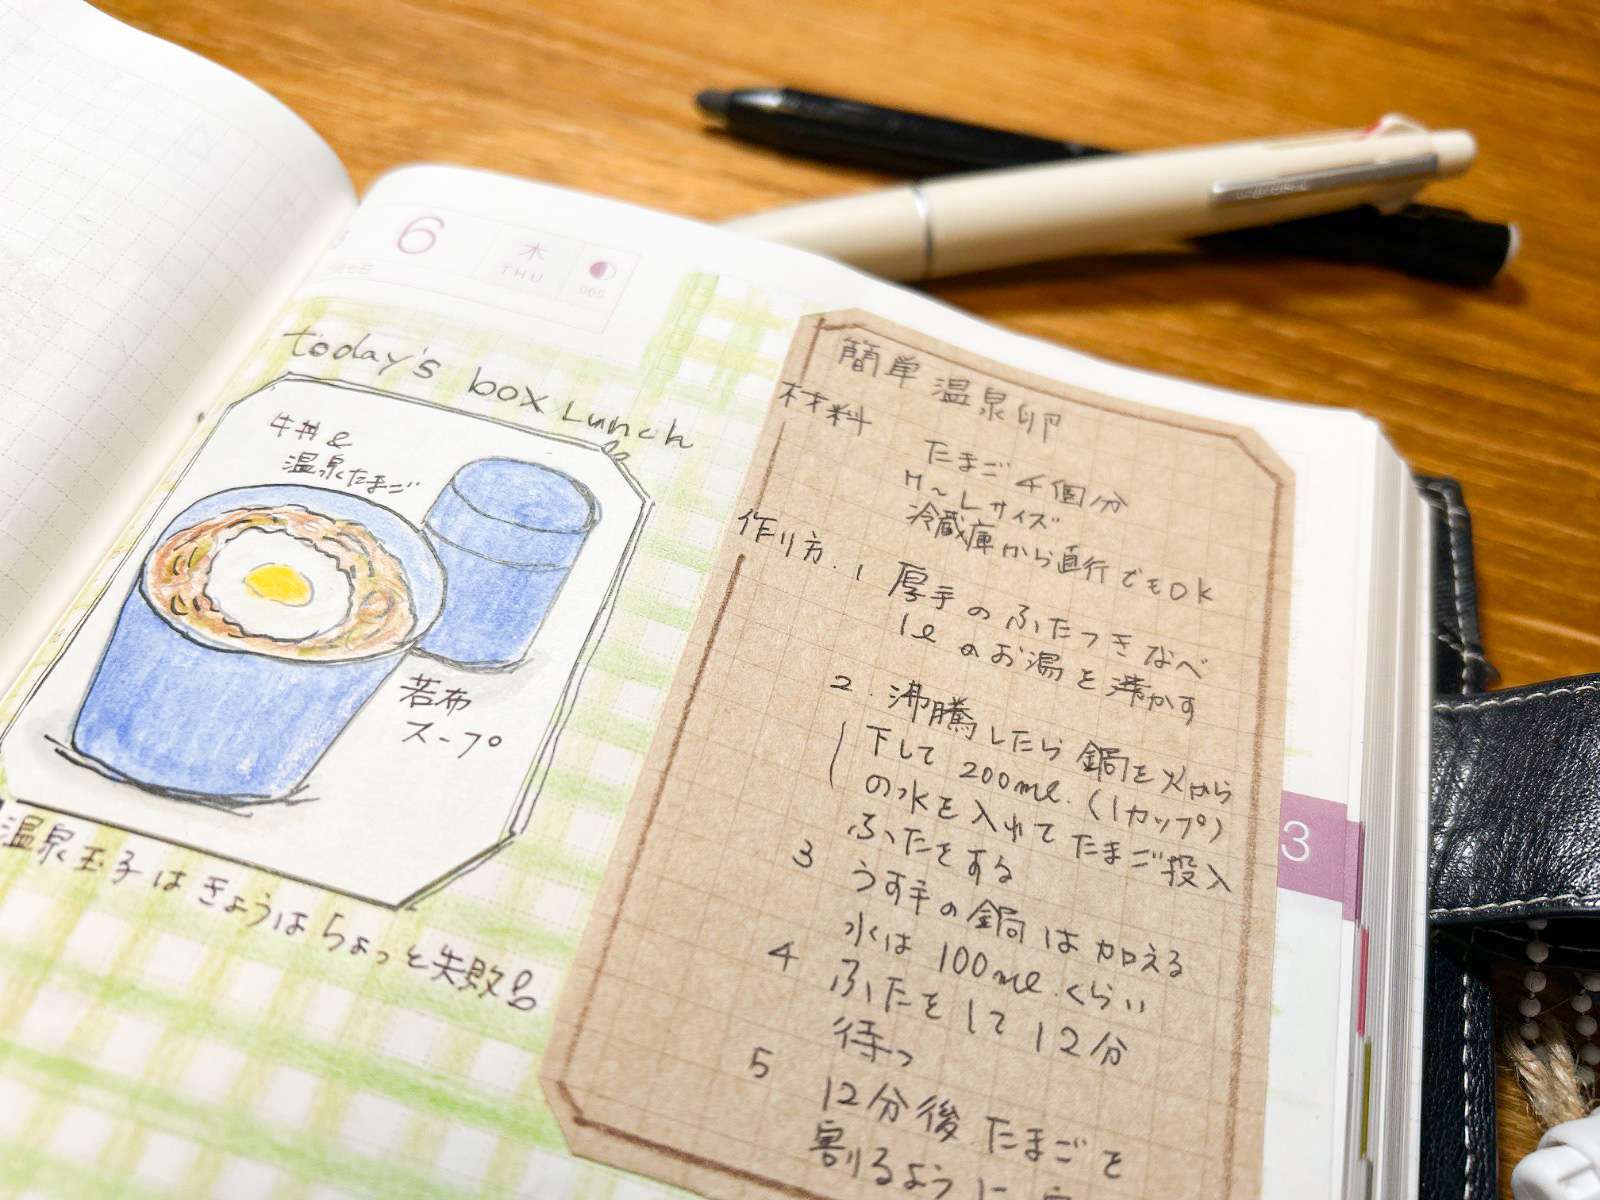 6
木
THU
065
today's box Lunch
牛丼&
温泉たまご
若布
スープ
温泉玉子はきょうはちょっと失敗
簡単温泉卵
材料
たまご4個分
M〜Lサイズ
冷蔵庫から直行でもOK
作り方.1 厚手のふたつきなべ
1ℓのお湯を沸かす
2.沸騰したら鍋を火から
下して200mℓ.(1カップ)
の水を入れてたまご投入
ふたをする
3 うす手の鍋は加える
水は100mℓ.くらい
4 ふたをして12分
待つ
5 12分後たまごを
割るように
3